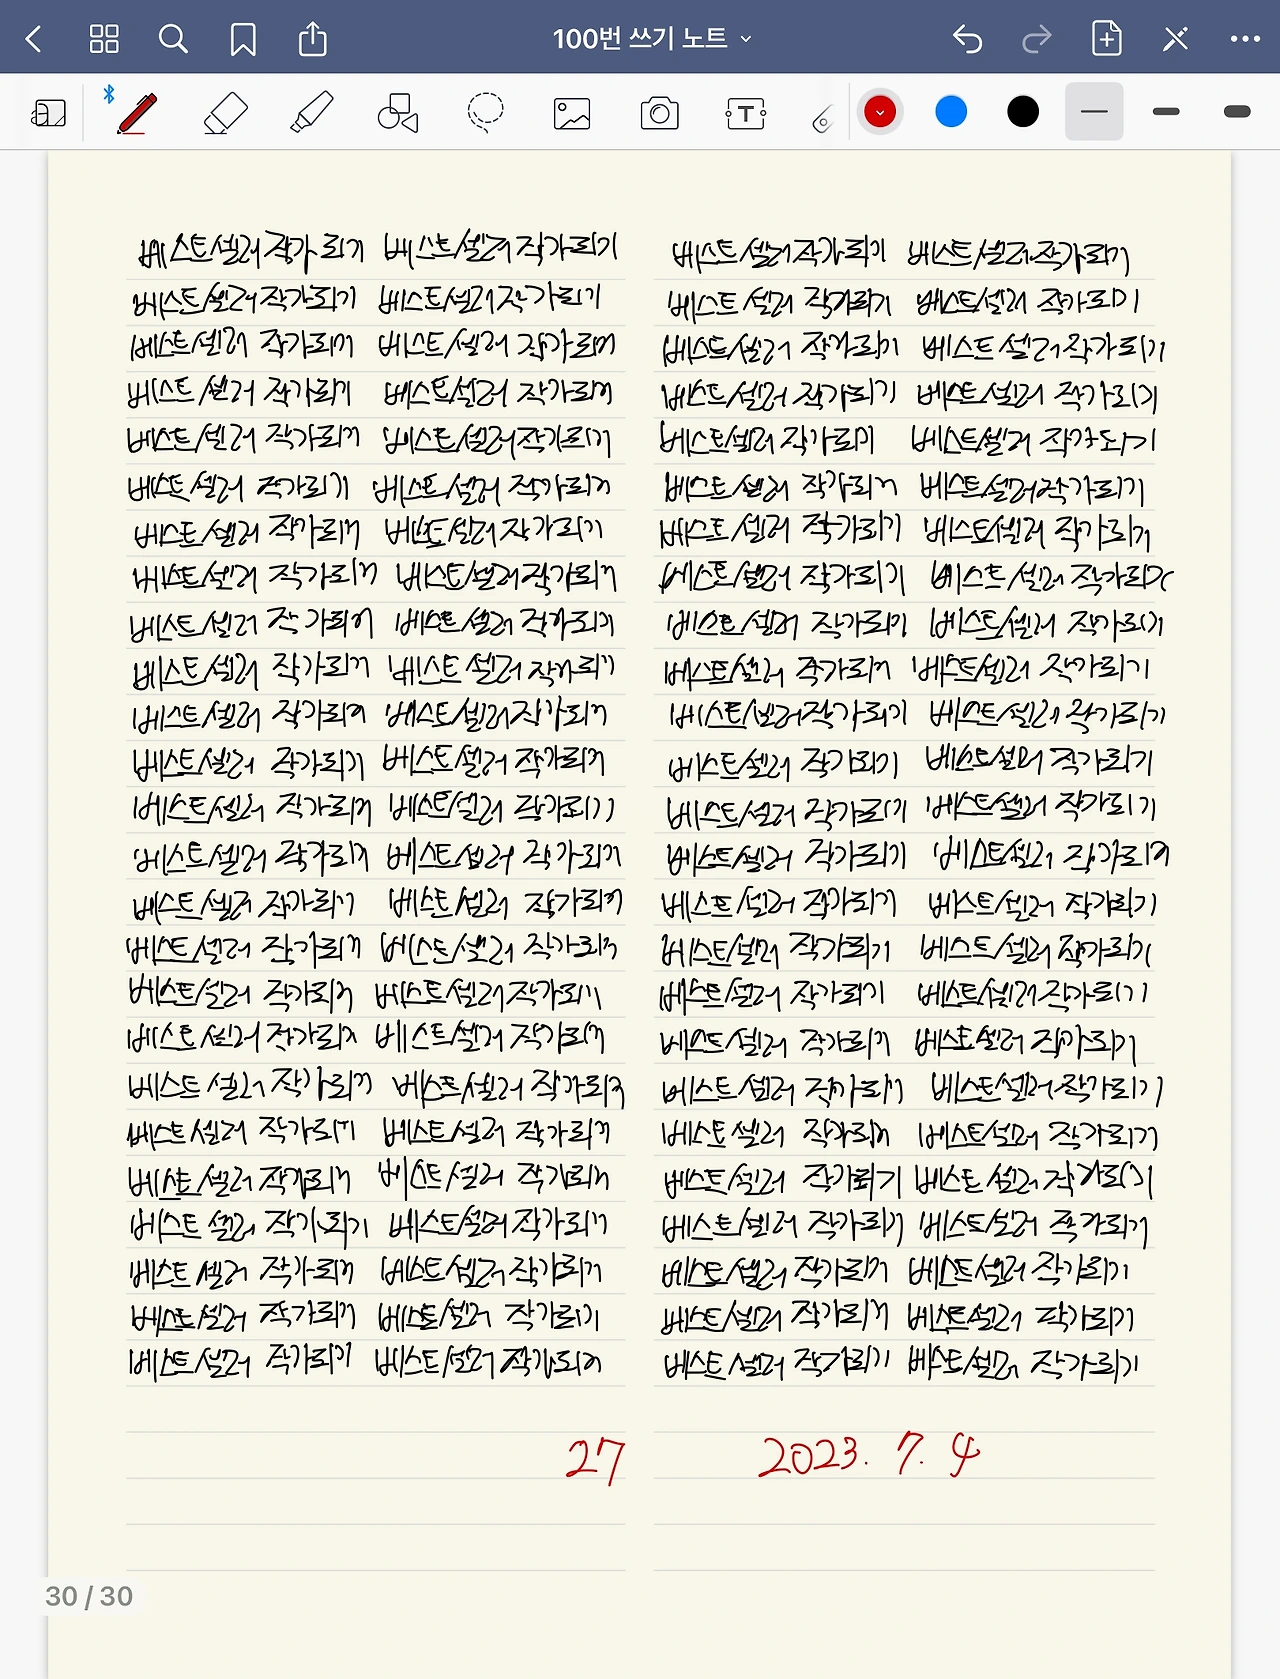 100번 쓰기 노트
T
베스트셀러 작가 되기 베스트셀러 작가되기 베스트셀러 작가되기 베스트셀러 작가되기
베스트셀러 작가되기 베스트셀러 작가되기 베스트셀러 작가되기 베스트셀러 작가되기
베스트셀러 작가되기 베스트셀러 작가되기 베스트셀러 작가되기 베스트셀러 작가되기
베스트셀러 작가되기 베스트셀러 작가되기 베스트셀러 작가되기 베스트셀러 작가되기
베스트셀러 작가되기 베스트셀러 작가되기 베스트셀러 작가되기 베스트셀러 작가되기
베스트셀러 작가되기 베스트셀러 작가되기 베스트셀러 작가되기 베스트셀러 작가되기
베스트셀러 작가되기 베스트셀러 작가되기 베스트셀러 작가되기 베스트셀러 작가되기
베스트셀러 작가되기 베스트셀러 작가되기 베스트셀러 작가되기 베스트셀러 작가되기
베스트셀러 작가되기 베스트셀러 작가되기 베스트셀러 작가되기 베스트셀러 작가되기
베스트셀러 작가되기 베스트셀러 작가되기 베스트셀러 작가되기 베스트셀러 작가되기
베스트셀러 작가되기 베스트셀러 작가되기 베스트셀러 작가되기 베스트셀러 작가되기
베스트셀러 작가되기 베스트셀러 작가되기 베스트셀러 작가되기 베스트셀러 작가되기
베스트셀러 작가되기 베스트셀러 작가되기 베스트셀러 작가되기 베스트셀러 작가되기
베스트셀러 작가되기 베스트셀러 작가되기 베스트셀러 작가되기 베스트셀러 작가되기
베스트셀러 작가되기 베스트셀러 작가되기 베스트셀러 작가되기 베스트셀러 작가되기
베스트셀러 작가되기 베스트셀러 작가되기 베스트셀러 작가되기 베스트셀러 작가되기
베스트셀러 작가되기 베스트셀러 작가되기 베스트셀러 작가되기 베스트셀러 작가되기
베스트셀러 작가되기 베스트셀러 작가되기 베스트셀러 작가되기 베스트셀러 작가되기
베스트셀러 작가되기 베스트셀러 작가되기 베스트셀러 작가되기 베스트셀러 작가되기
베스트셀러 작가되기 베스트셀러 작가되기 베스트셀러 작가되기 베스트셀러 작가되기
베스트셀러 작가되기 베스트셀러 작가되기 베스트셀러 작가되기 베스트셀러 작가되기
베스트셀러 작가되기 베스트셀러 작가되기 베스트셀러 작가되기 베스트셀러 작가되기
베스트셀러 작가되기 베스트셀러 작가되기 베스트셀러 작가되기 베스트셀러 작가되기
베스트셀러 작가되기 베스트셀러 작가되기 베스트셀러 작가되기 베스트셀러 작가되기
베스트셀러 작가되기 베스트셀러 작가되기 베스트셀러 작가되기 베스트셀러 작가되기
27 2023. 7. 4
30 / 30